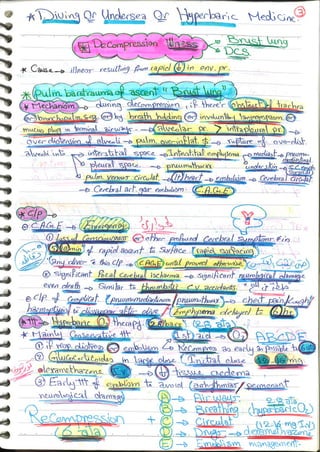 * Diving Or Undersea Or Hyperbaric Medicine ③
Decompression Illness → Burst lung
→ DCS
* Cause → illness resulting from rapid ↓ in env. pr.
* Pulm. barotrauma of ascent "Burst lung"
* Mechanism → during decompression, if there's obstruct. of trachea
or bronchiolus or by breath holding or involuntary laryngospasm or
mucus plug in terminal airways → alveolar pr. > intrapleural pr. →
over distension of alveoli → pulm. over-inflat. → rupture of over-dist.
alveoli into → interstitial space → Interstitial emphysema → mediast.
→ pleural space → pneumothorax
→ pulm. venous circulat. → Lt heart → embolism → Cerebral circulat.
→ Cerebral art. gas embolism C.A.G.E
* C/P
① CAGE → Emergency
① Loss of Consciousness or other profound Cerebral symptoms within
10 min of rapid ascent to surface (rapid surfacing)
any diver & this C/P → CAGE until proved otherwise
② Significant focal cerebral ischaemia → significant neurological damage
even death → Similar to thrombotic C.V. accidents
② C/P of Complicat. pneumomediastinum / pneumothorax → chest pain / cough
haemoptysis & dyspnea after dive / Emphysema delayed to 6 hrs
* ttt → Hyperbaric O₂ therapy 2.8 bars (2.8 ata)
* Maint. Conservative ttt 1st aid → O₂
① if stop diving & embolism → Recompress as early as possible to 6 ata
② glucocorticoids in large dose (Initial dose
dexamethasone → ↓ tissue oedema
③ Early ttt of embolism to avoid
neurological damage
(A) → Air ways
(B) → Breathing (hyperbaric O₂) 2.8 ata
(C) → Circulat.
(D) → Drugs → dexamethasone
(E) → Embolism management
Recompression
6 ata
+